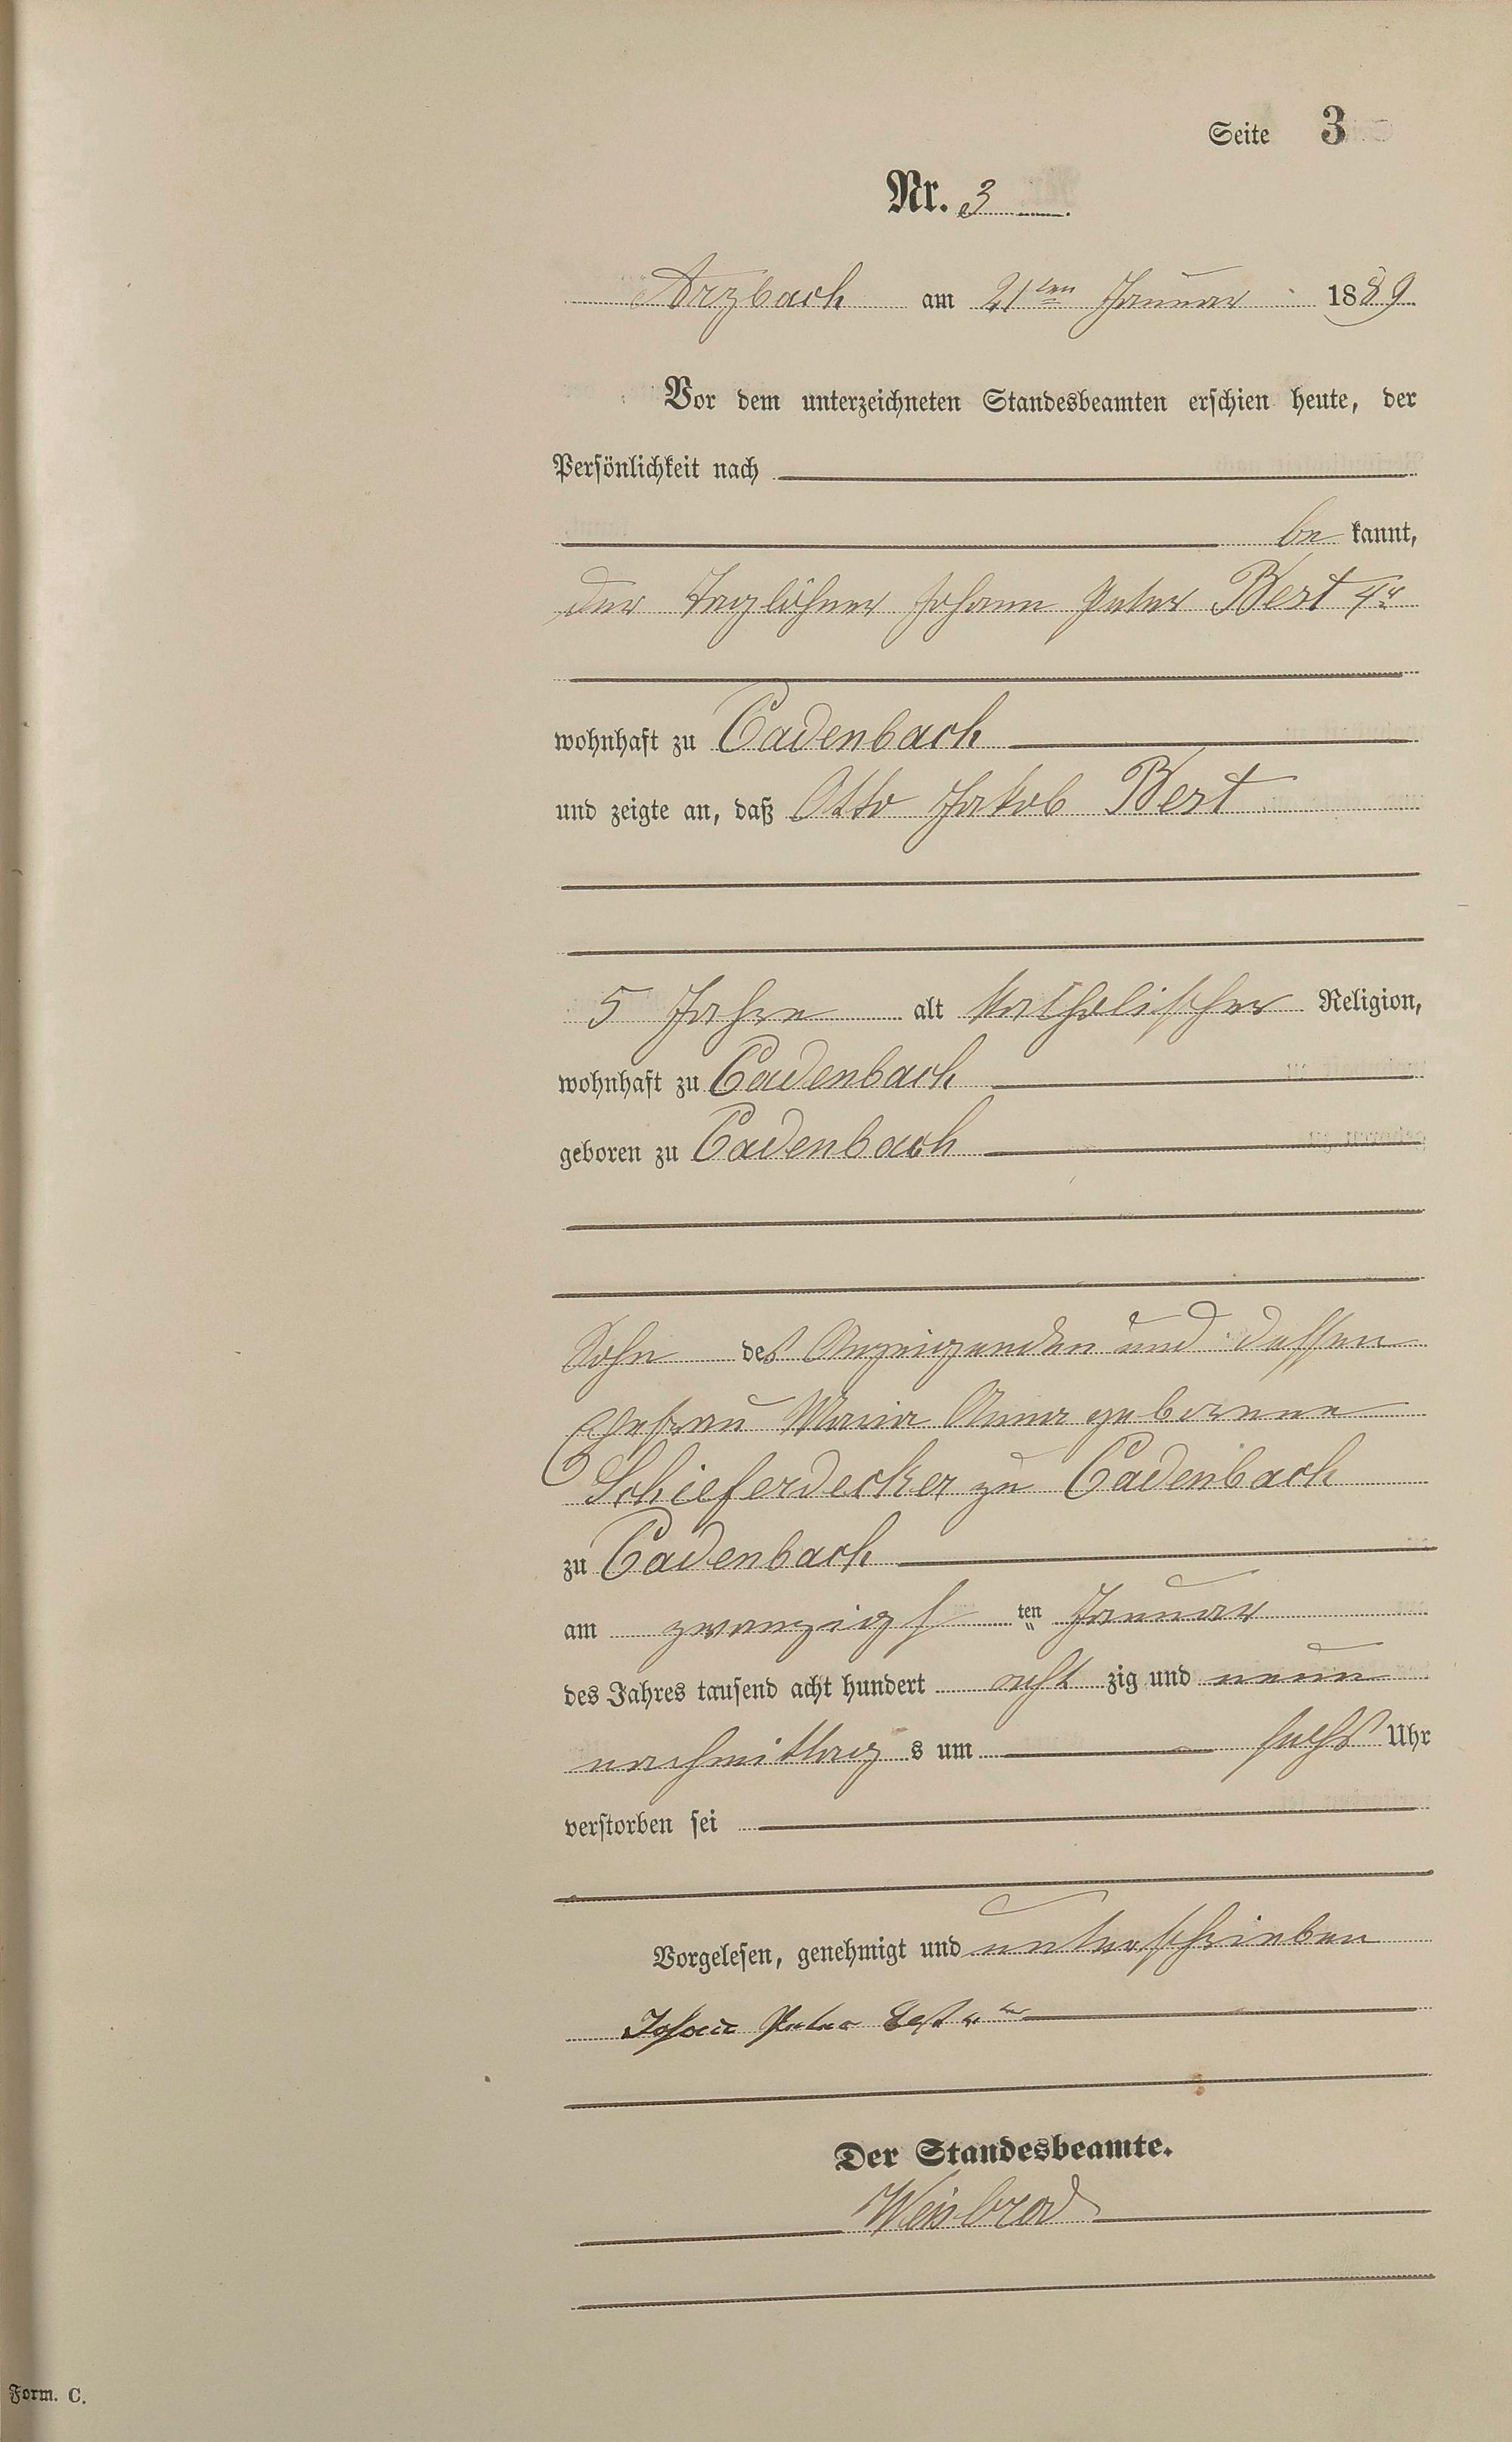 Seite 3
Nr. 3.
Arzbach am 21ten Januar 1889
Vor dem unterzeichneten Standesbeamten erschien heute, der
Persönlichkeit nach
be kannt,
der Taglöhner Johann Peter Best 4r
wohnhaft zu Cadenbach
und zeigte an, daß Otto Jakob Best
5 Jahre alt katholischer Religion,
wohnhaft zu Cadenbach
geboren zu Cadenbach
Sohn des Anzeigenden und dessen
Ehefrau Maria Anna geborene
Schieferdecker zu Cadenbach
zu Cadenbach
am zwanzigs ten Januar
des Jahres tausend acht hundert acht zig und neun
nachmittag s um sechs Uhr
verstorben sei
Vorgelesen, genehmigt und unterschrieben
Johann Peter Best 4ter
Der Standesbeamte.
Weisbrod
Form. C.